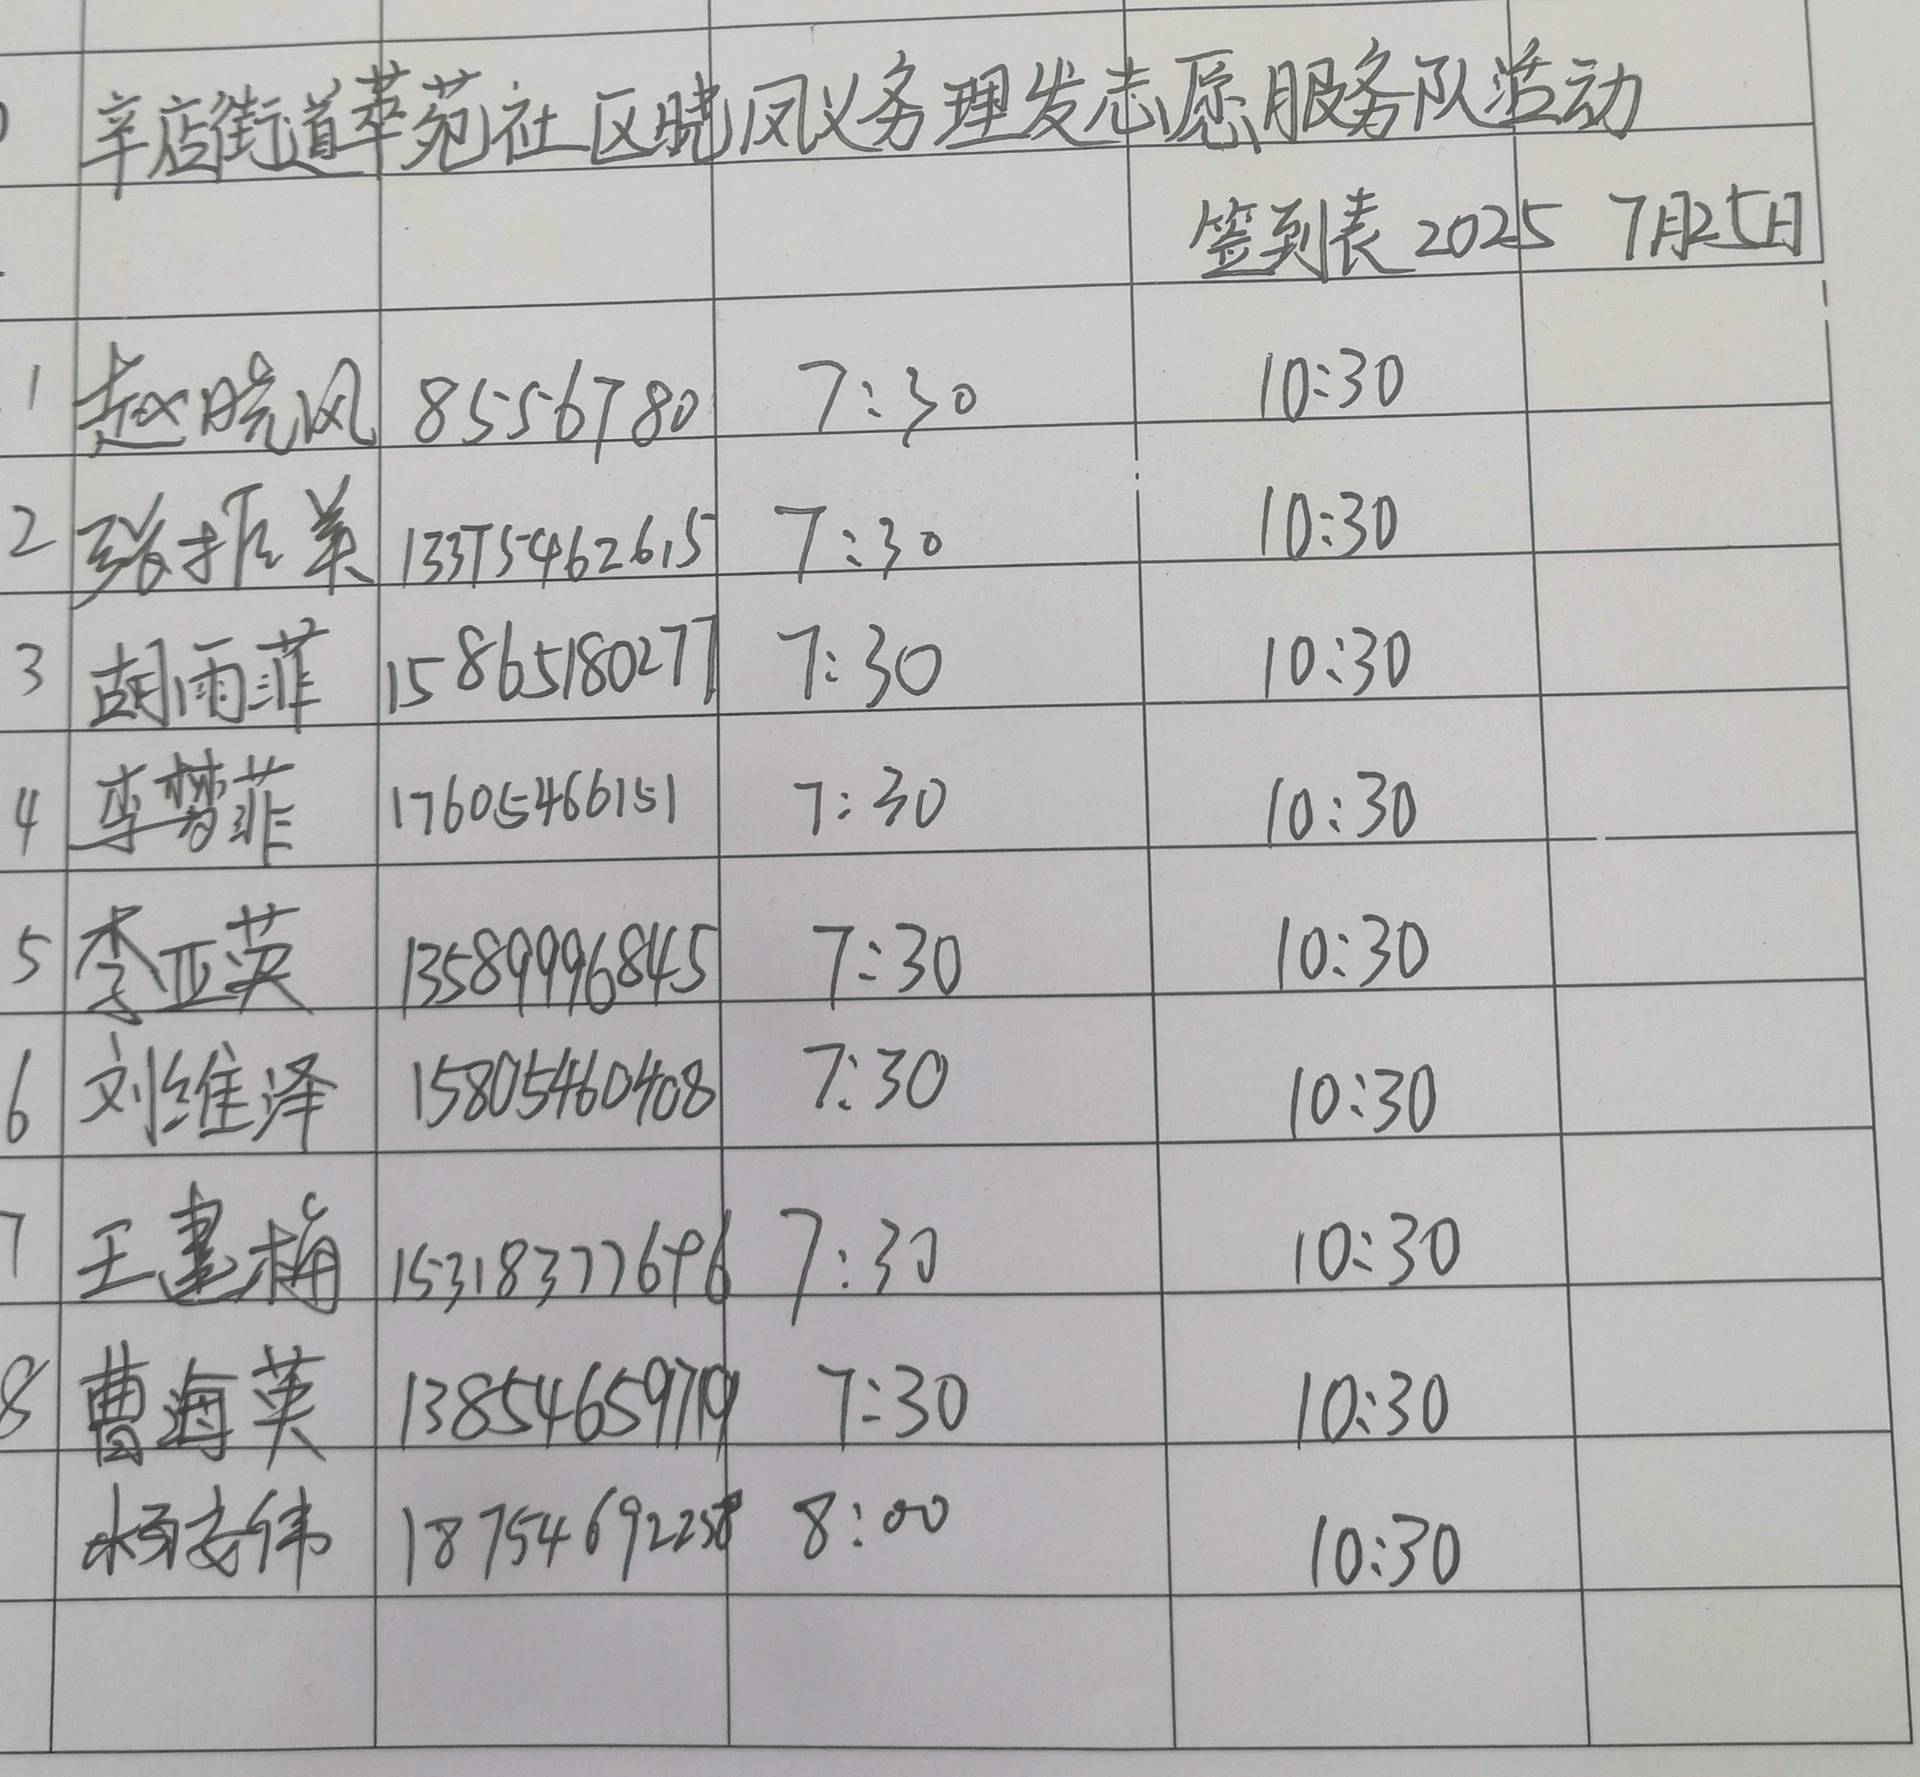 辛店街道萃苑社区晓凤义务理发志愿服务队活动
签到表 2025 7月25日
1 赵晓凤 8556780 7:30 10:30
2 张振美 13375462615 7:30 10:30
3 胡雨菲 15865180277 7:30 10:30
4 李梦菲 17605466151 7:30 10:30
5 李亚英 13589996845 7:30 10:30
6 刘维泽 15805460408 7:30 10:30
7 王建梅 15318377696 7:30 10:30
8 曹海英 13854659719 7:30 10:30
杨安伟 18754692258 8:00 10:30